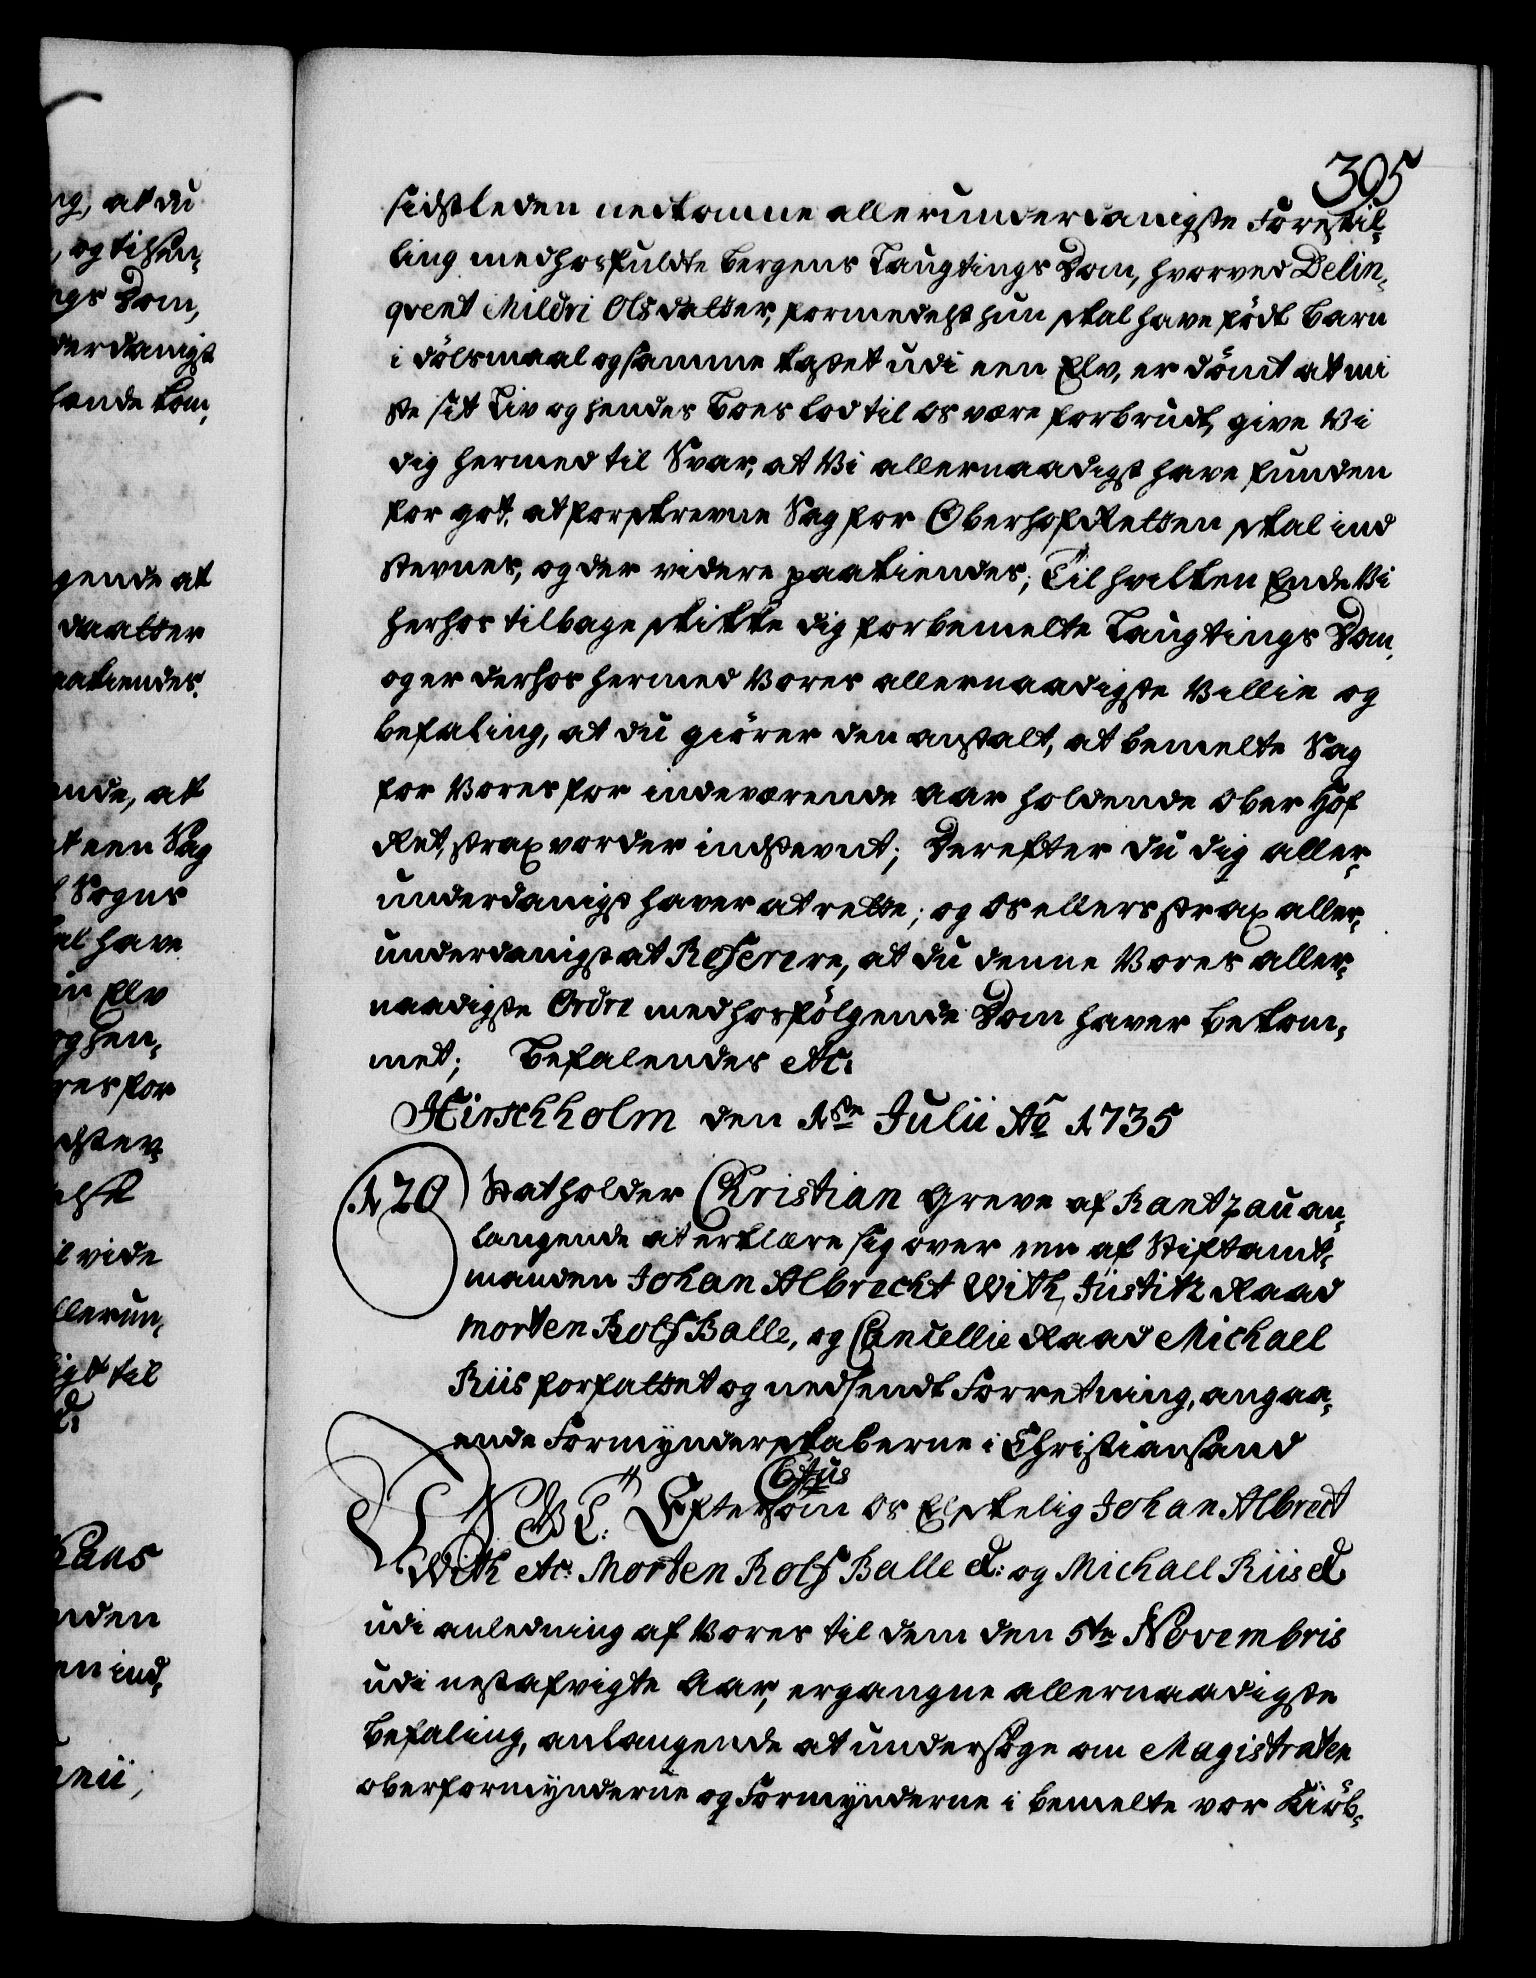 395
sidstleden nedkomne allerunderdanigste Forestil-
ling medhosfuldte Bergens Laugtings Dom, hvorved Delin-
qvent Mildri Olsdatter, formedelst hun skal have födt Barn
i dölsmaal og samme kastet udi een Elv, er dömt at mi
ste sit Liv og hendes Boes lod til Os være forbrudt, give Vi
dig hermed til Svar, at Vi allernaadigst have funden
for got, at forskrevne Sag for OberhofRetten skal ind
stevnes, og der videre paakiendes; Til hvilken Ende Vi
herhos tilbage skikke dig forbemelte Laugtings Dom,
og er derhos hermed Vores allernaadigste Villie og
befaling, at du giörer den anstalt, at bemelte Sag
for Vores for indeværende Aar holdende Ober Hof
Ret, strax vorder indstevnt; Derefter du dig aller-
underdanigst haver at rette; og Os ellers strax aller-
underdanigst at Referere, at du denne Vores aller-
naadigste Ordre medhosfölgende Dom haver bekom-
met; Befalendes etc:
Hirschholm den 1ste Julii Ao 1735
120 Statholder Christian Greve af Rantzau an-
langende at erklære sig over een af Stiftamt-
manden Johan Albrecht With, Justitz Raad
Morten Rolf Balle, og Cancellie Raad Michael
Riis forfattet og nedsendt Forretning, angaa-
ende Formynderskaberne i Christiansand
C6tus
V G T: Eftersom Os Elskelig Johan Albrect
With etc: Morten Rolf Balle etc: og Michael Riis etc
udi anledning af Vores til dem den 5te Novembris
udi nestafvigte Aar, ergangne allernaadigste
Befaling, anlangende at undersöge om Magistraten
oberformynderne og Formynderne i bemelte vor Kiöb-